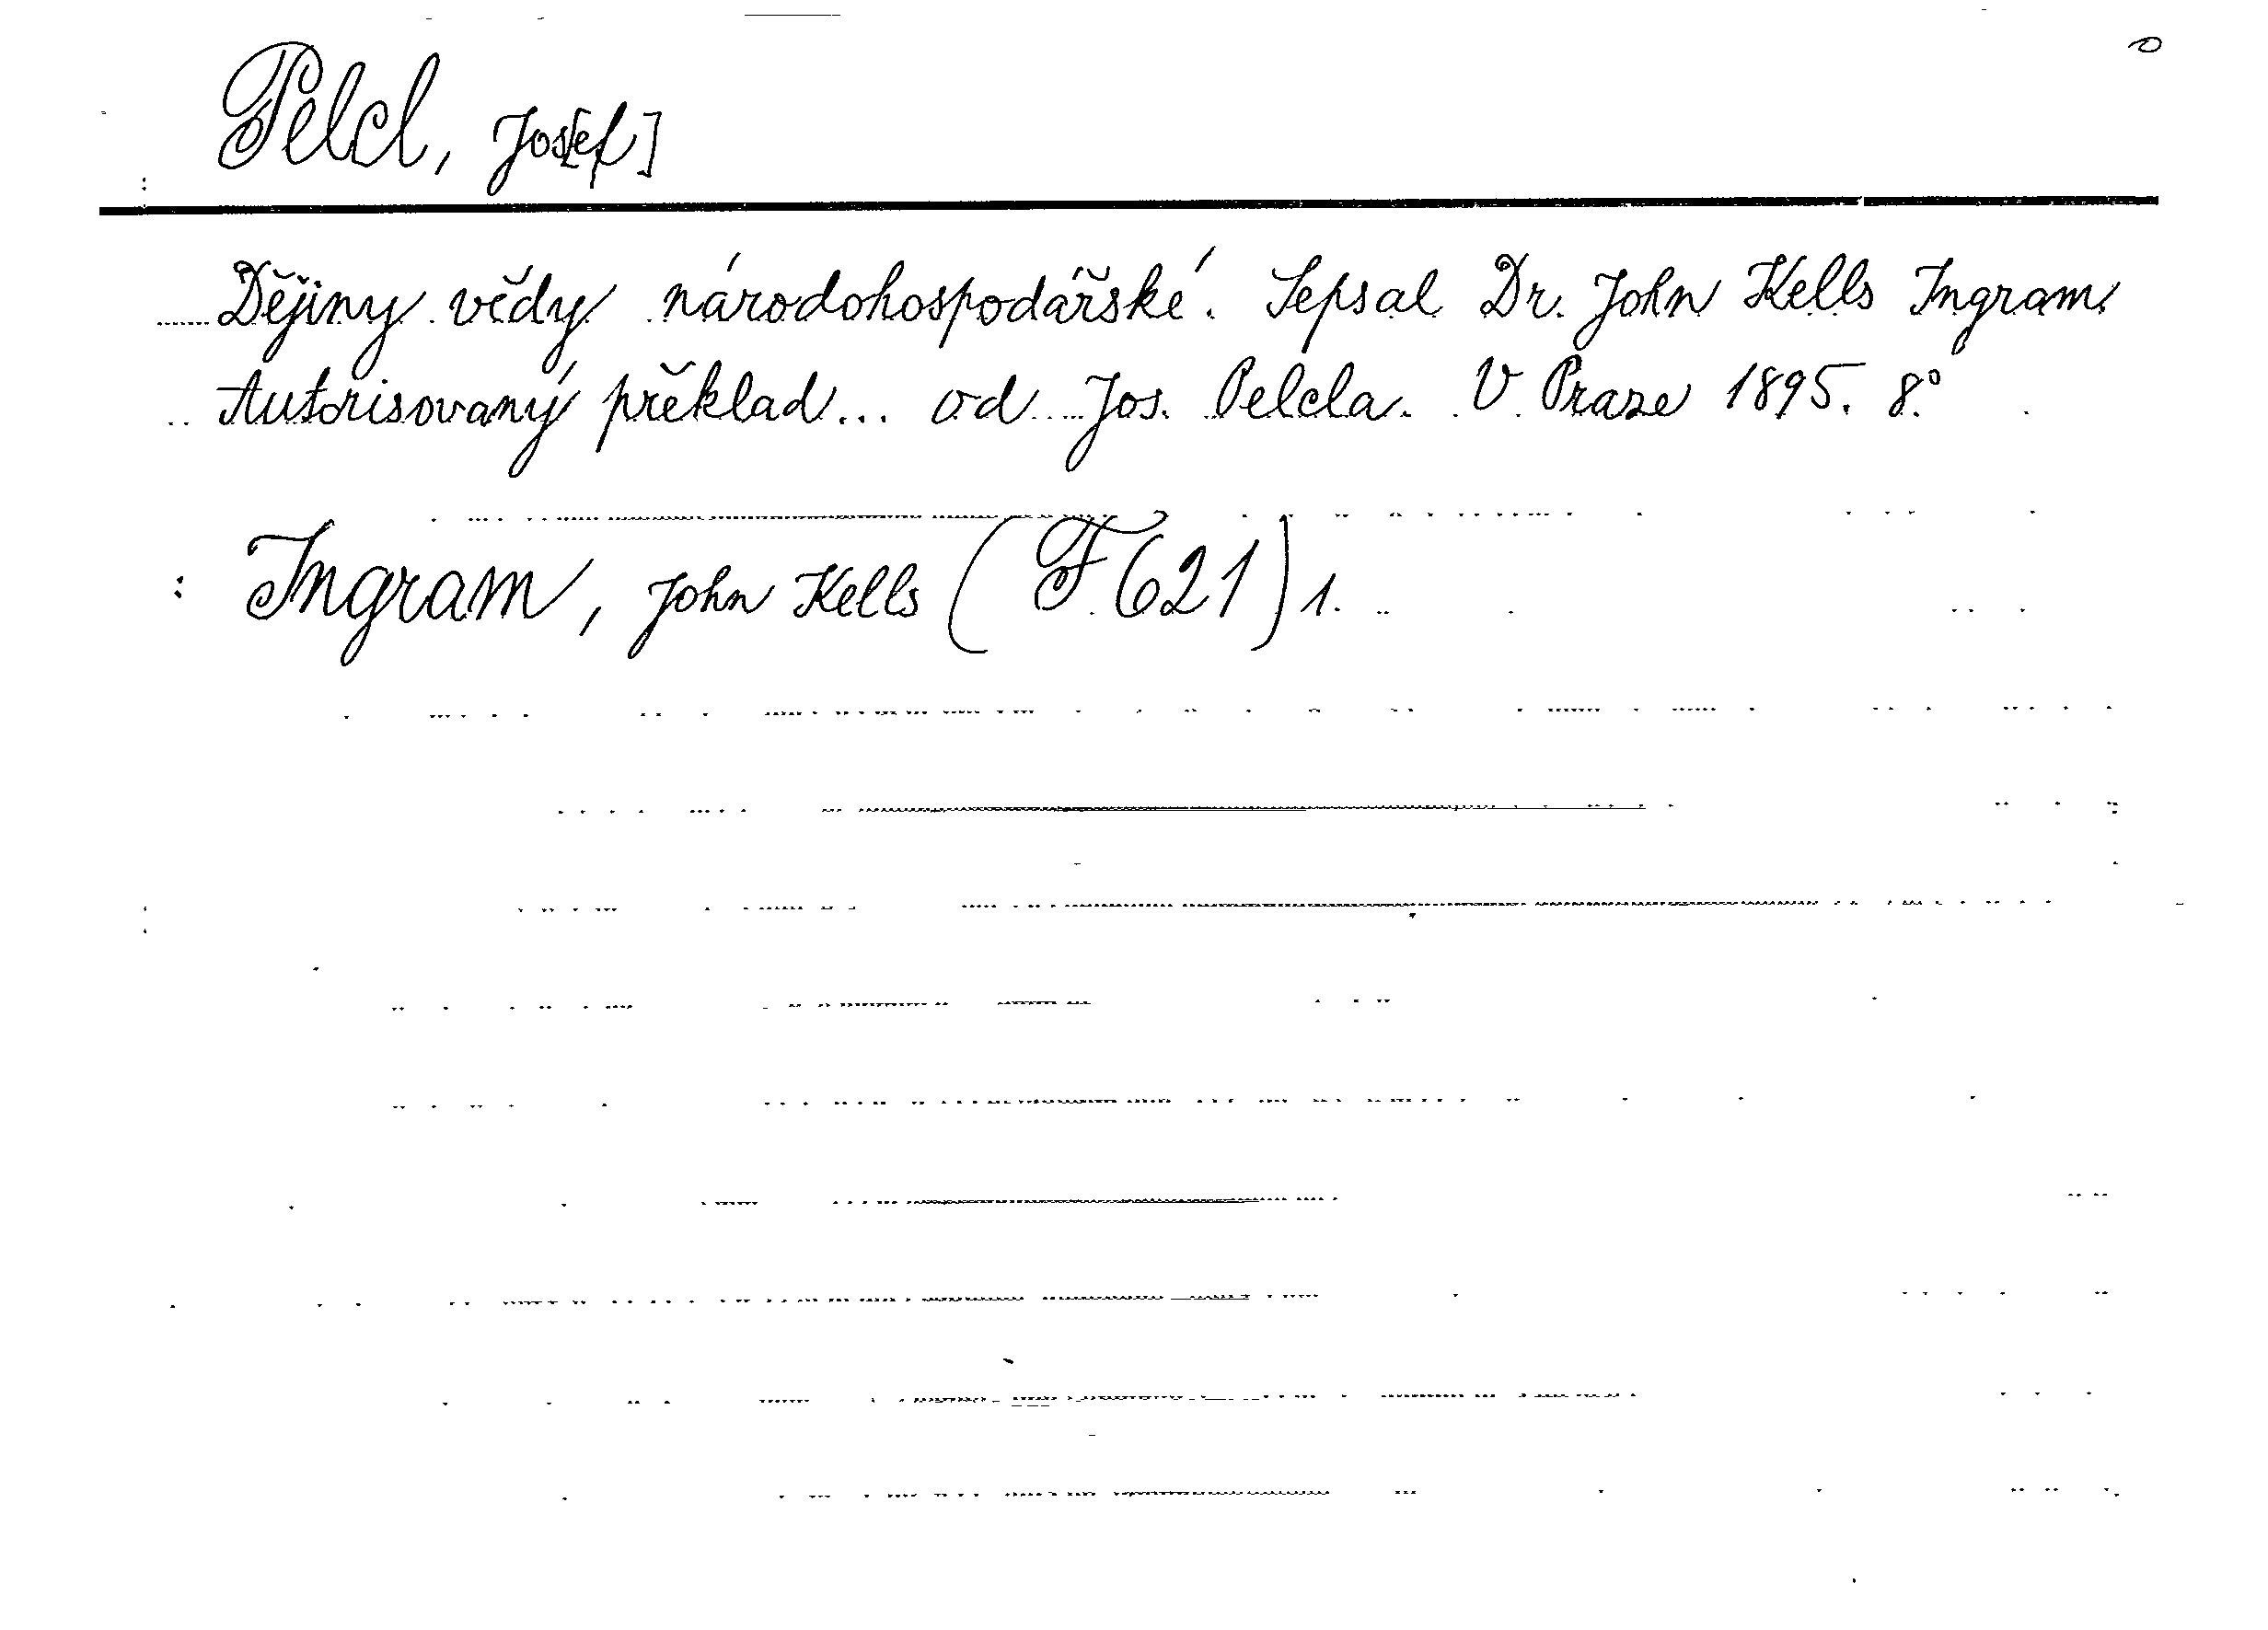 Pelcl, Jos[ef]
Dějiny vědy národohospodářské. Sepsal Dr. John Kells Ingram.
Autorisovaný překlad... od Jos. Pelcla. V Praze 1895. 8.°
: Ingram, John Kells (F.621) 1.